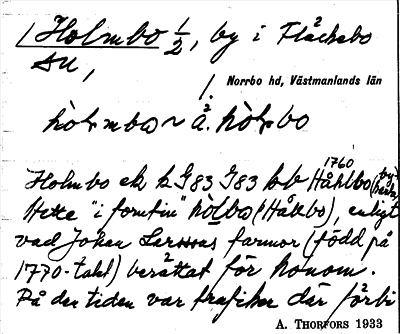 Holmbo 1/2, by i Fläckebo
sn,
1. Norrbo hd, Västmanlands län
hòlmba ~ ä. hòlbo
Holmbo ek k G83 G83 bb 1760 Håhlbo (by-
Hette "i forntin" hòlbo (Hålbo), enligt
vad Johan Larssons farmor (född på
1770-talet) berättat för honom.
På den tiden var trafiken där förbi
A. Thorfors 1933